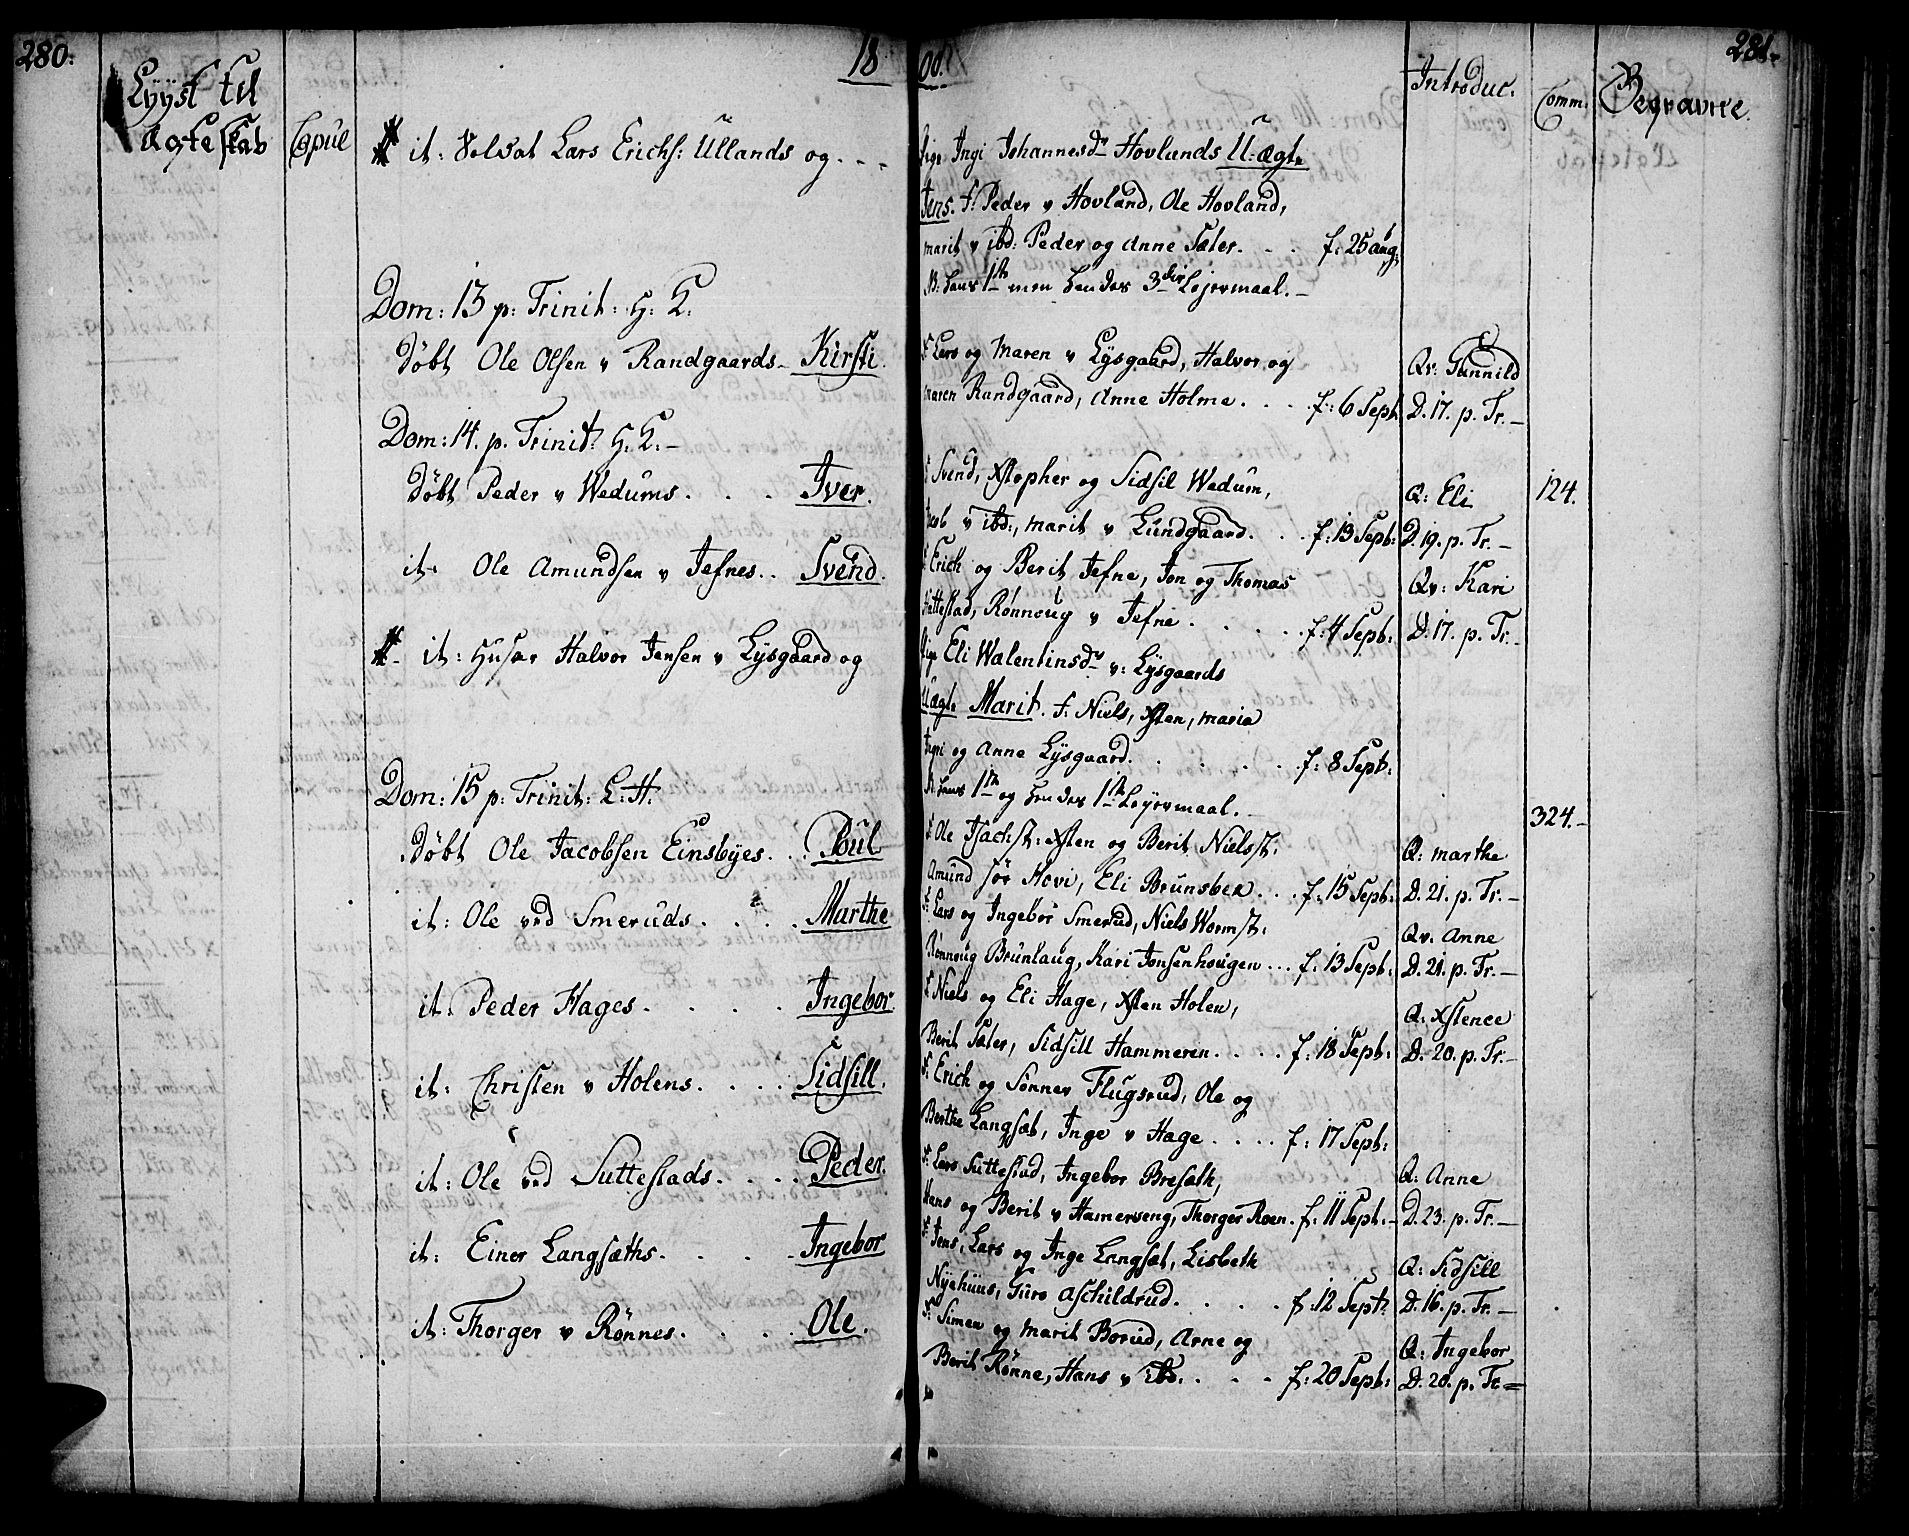 280.
18
00.
281.
Lyyst til
Ægteskab
Copul
Introduc.
Comm.
Begravne.
it: Solsat Lars Erichs: Ullands og . . .
Pige Ingi Johannesdr Hovlands U:ægte
Jens. F: Peder v Hovland, Ole Hovland,
marit v ibd: Peder og Anne Sæter. . . f: 25 aug:
NB: Hans 1ste men hendes 3die Lejermaal. –
Dom: 13 p: Trinit: H: K:
Døbt Ole Olsen v Randgaards – Kirsti.
F Lars og Maren v Lysgaard, Halvor og
maren Randgaard, Anne Holme. . . . f: 6 Sept:
Qv: Gunnild
D. 17. p. Tr. –
Dom: 14. p. Trinit: H: K: –
Døbt Peder v Wedums. . . . Iver.
F Svend, Xstopher og Sidsil Wedum,
Jacob v ibd:, marit v Lundgaard. . . f: 13 Sept:
Q: Eli
D. 19. p. Tr. –
124.
it. Ole Amundsen v Jefnes. . Svend.
F Erich og Berit Jefne, Jon og Thomas
Suttestad, Rønnoug v Jefne . . . . . f: 4 Sept:
Qv: Kari
D. 17. p. Tr. –
it: Husar Halvor Jensen v Lysgaard og
Pige Eli Walentinsdr v: Lysgaards
Uægte Marit. F: Niels, Xsten, maria
Ingri og Anne Lysgaard. . . . . . f: 8 Sept:
N. hans 1ste og hendes 1ste Lejermaal. –
Dom: 15 p: Trinit: L: H.
324. –
Døbt Ole Jacobsen Einsbyes. . . Poul
F Ole Isachst: Xsten og Berit Nielsst:
Amund Sør Hovi, Eli Brunsber. . . f: 15 Sept:
Q: marthe
D. 21. p. Tr. –
it: Ole ved Smeruds. . . . . Marthe
F: Lars og Ingebor Smerud, Niels Wormst:
Rønnoug Brunlaug, Kari Jonsenhougen . . f: 13 Sept:
Qv. Anne
D. 21. p. Tr. –
it. Peder Hages . . . . . Ingebor
F Niels og Eli Hage, Xsten Holen,
Berit Sæter, Sidsill Hammeren . . . . f: 18 Sept:
Q: Xstence
D. 20. p. Tr. –
it: Christen v Holens. . . . Sidsill.
F: Erich og Sønnev Flugsrud, Ole og
Berthe Langsæt, Inge v Hage . . . . f: 17 Sept:
it: Ole ved Suttestads. . . . Peder.
F: Lars Suttestad, Ingebor Bresæth,
Hans og Berit v Hamerseng, Thorger Roen. f: 11 Sept: –
Q: Anne
D. 23. p. Tr. –
it: Einer Langsæths. . . . . Ingebor
F: Jens, Lars og Inge Langsæt, Lisbeth
Nyehuus, Guro Aschildrud. . . . . f: 12 Sept:
Q: Sidsill
D. 16. p. Tr. –
it: Thorger v Rønnes. . . . . Ole.
F: Simen og marit Borud, Arne og
Berit Rønne, Hans v Ibd. . . . f: 20 Sept:
Q: Ingebor
D. 20. p. Tr =